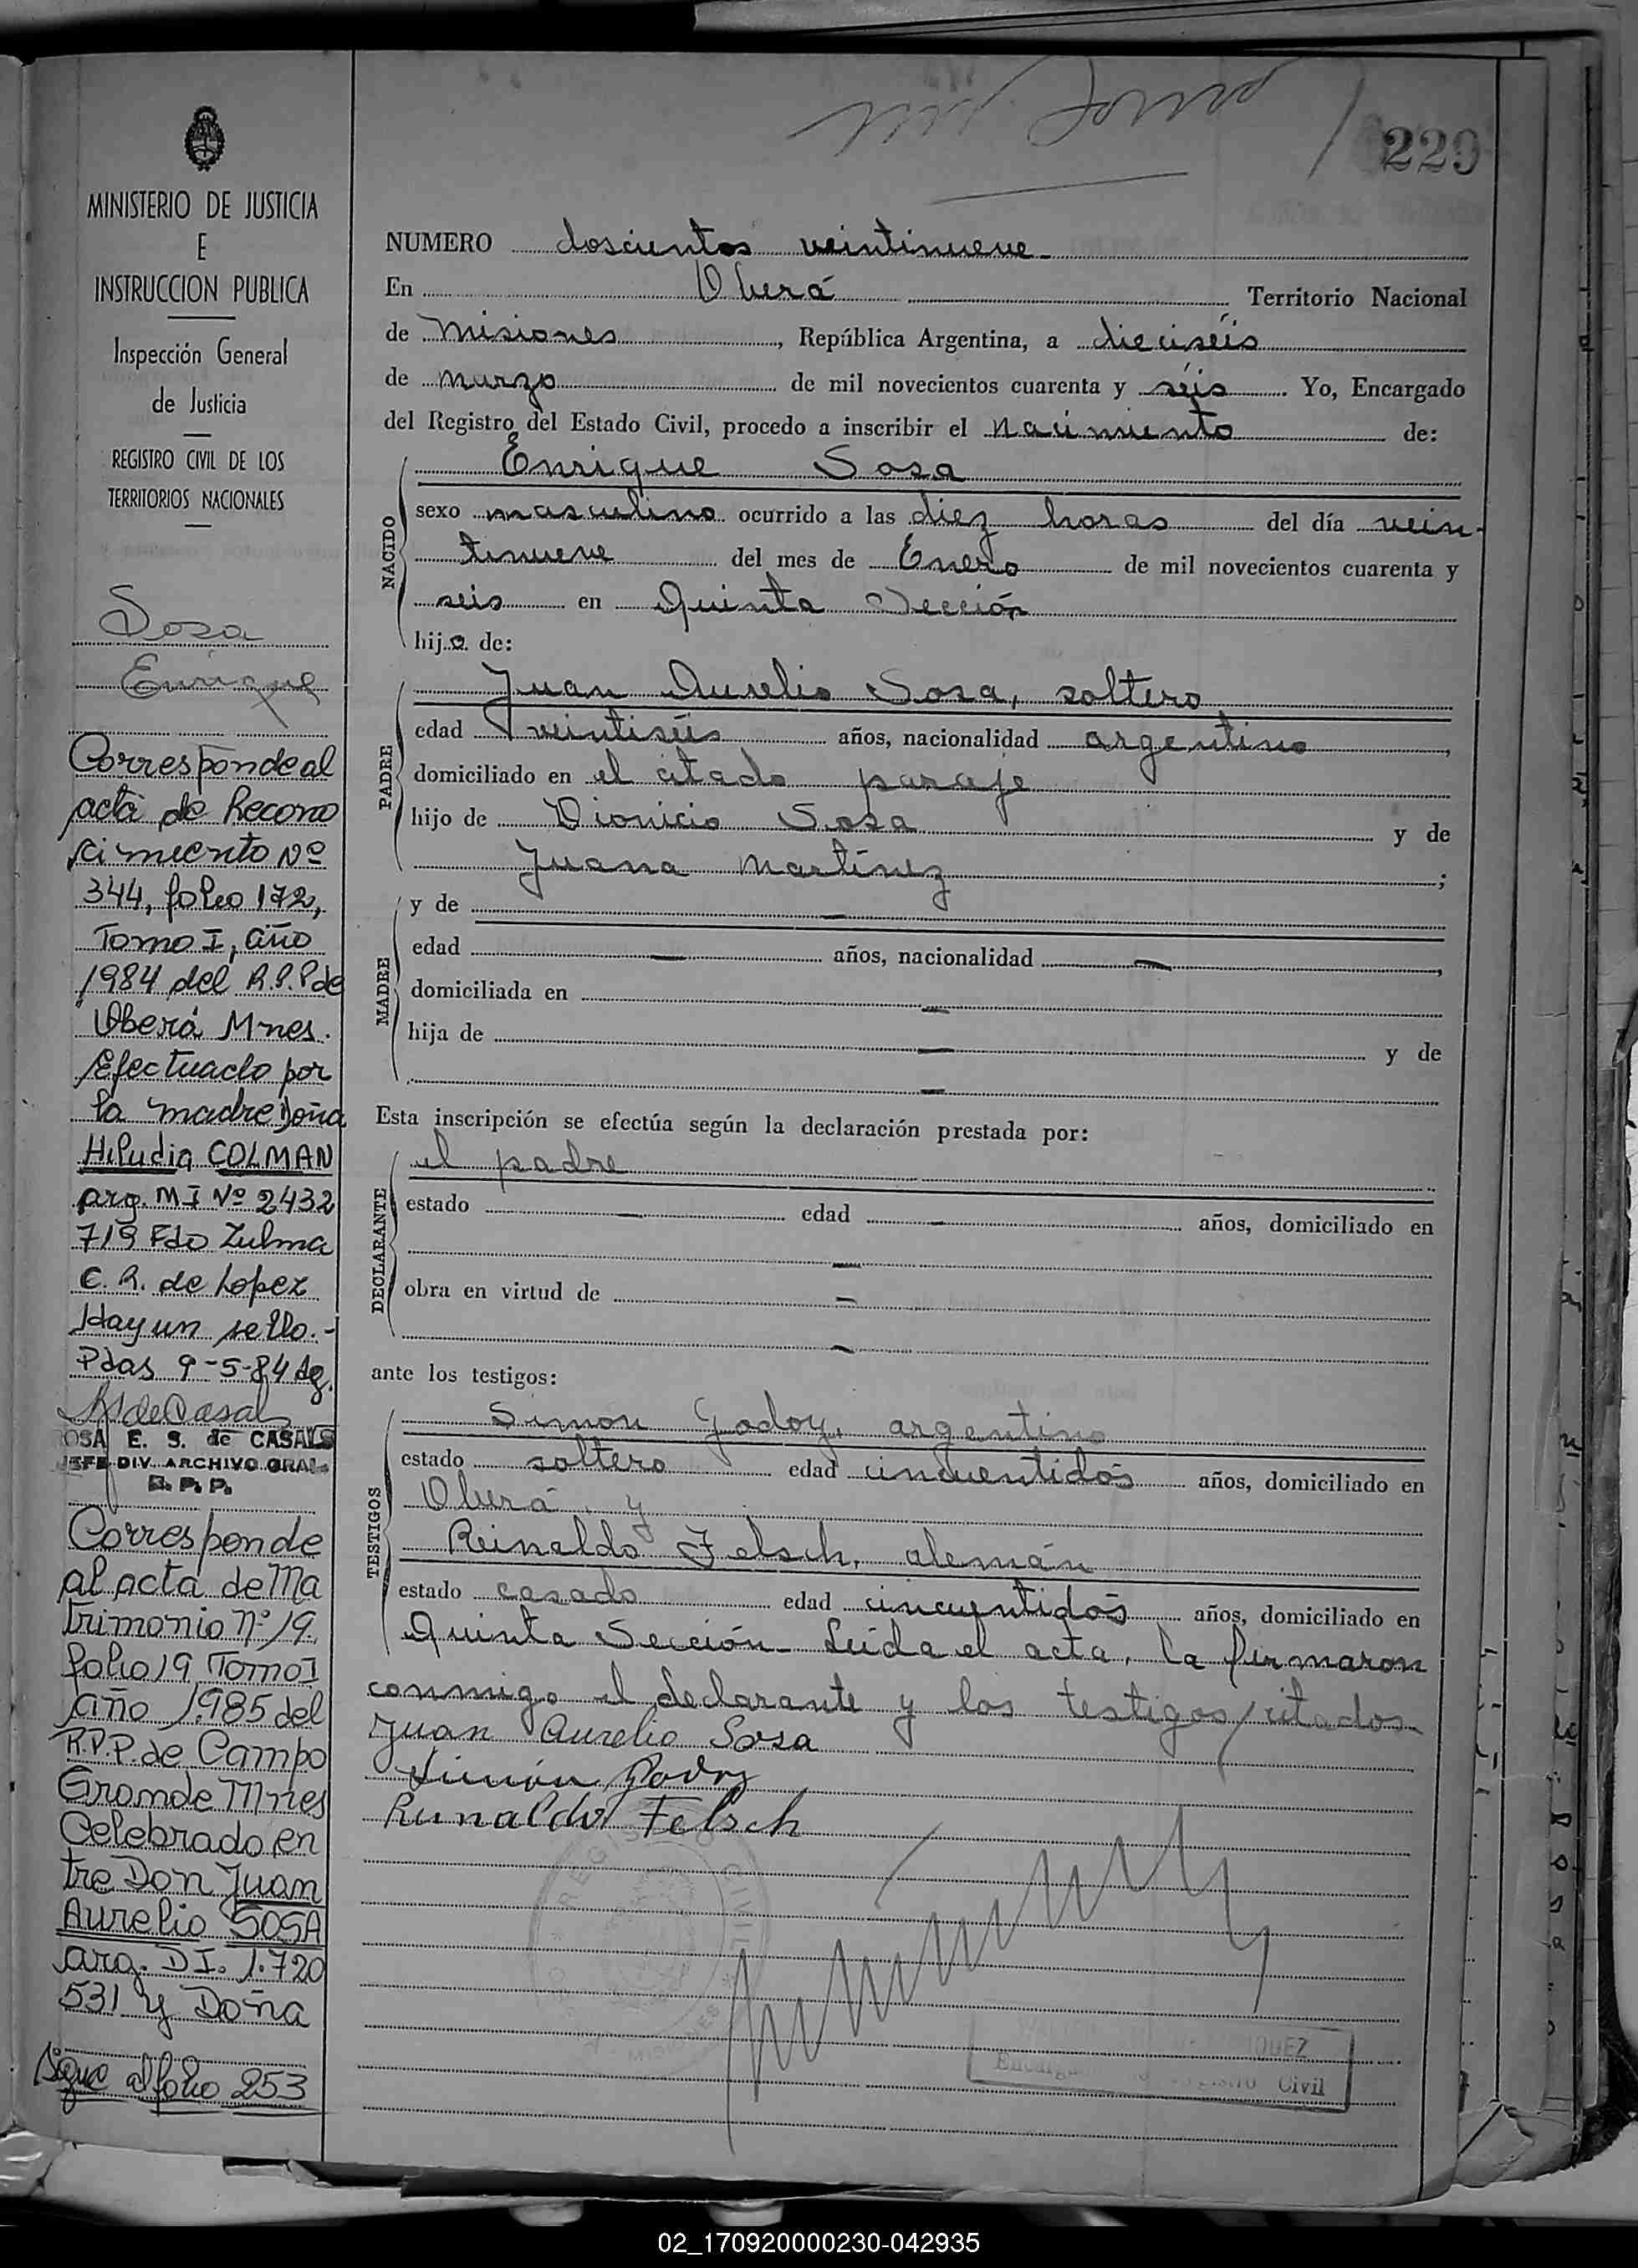 229
MINISTERIO DE JUSTICIA
E
INSTRUCCION PUBLICA
Inspección General
de Justicia
REGISTRO CIVIL DE LOS
TERRITORIOS NACIONALES
Sosa
Enrique
Corresponde al
acta de Recono
cimiento Nº
344, folio 172,
Tomo I, año
1984 del R.P.P de
Oberá Mnes.
Efectuado por
la madre Doña
Hiludia COLMAN
arg. M I Nº 2432
719 Fdo Zulma
C. R. de Lopez
Hay un sello.-
Pdas 9-5-84 dg.
ROSA E. S. de CASALS
JEFE DIV. ARCHIVO GRAL
R. P. P.
Corresponde
al acta de Ma
trimonio Nº 19
folio 19 Tomo I
año 1985 del
R.P.P. de Campo
Grande Mnes
Celebrado en
tre Don Juan
Aurelio SOSA
arg. D I. 1.720
531 y Doña
Sigue al folio 253
NUMERO doscientos veintinueve
En Oberá, Territorio Nacional
de Misiones, República Argentina, a dieciséis
de marzo de mil novecientos cuarenta y séis. Yo, Encargado
del Registro del Estado Civil, procedo a inscribir el nacimiento de:
NACIDO
Enrique Sosa
sexo masculino ocurrido a las diez horas del día vein-
tinueve del mes de Enero de mil novecientos cuarenta y
seis en Quinta Sección
hijo de:
PADRE
Juan Aurelio Sosa, soltero
edad veintiséis años, nacionalidad argentino,
domiciliado en el citado paraje
hijo de Dionicio Sosa y de
Juana Martínez;
MADRE
y de —
edad — años, nacionalidad —,
domiciliada en —
hija de — y de
—
Esta inscripción se efectúa según la declaración prestada por:
DECLARANTE
el padre
estado — edad — años, domiciliado en
—
obra en virtud de —
—
ante los testigos:
TESTIGOS
Simon Godoy, argentino
estado soltero edad cincuentidós años, domiciliado en
Oberá, y
Reinaldo Felsch, alemán
estado casado edad cincuentidós años, domiciliado en
Quinta Sección- Leída el acta, la firmaron
conmigo el declarante y los testigos citados
Juan Aurelio Sosa
Simón Godoy
Reinaldo Felsch
REGISTRO CIVIL
MISIONES
Encargado Registro Civil
02_170920000230-042935